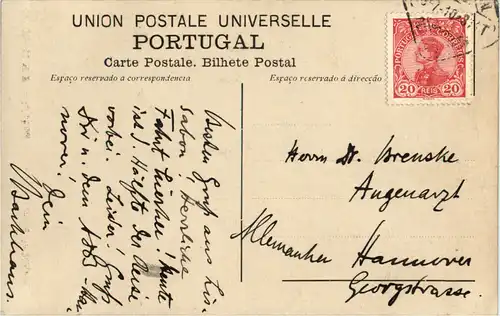 UNION POSTALE UNIVERSELLE
PORTUGAL
Carte Postale. Bilhete Postal
Espaço reservado a correspondencia
Espaço reservado á direcção
PORTUGAL
20 REIS 20
Besten Gruß aus Lis-
sabon! Herrliche
Fahrt hierher! Heute
ist d. Hälfte der Reise
vorbei. Leider! Gruß
Dir u. dem
nover! Dein
Herrn Dr. Brenske
Augenarzt
Allemanha Hannover
Georgstrasse.